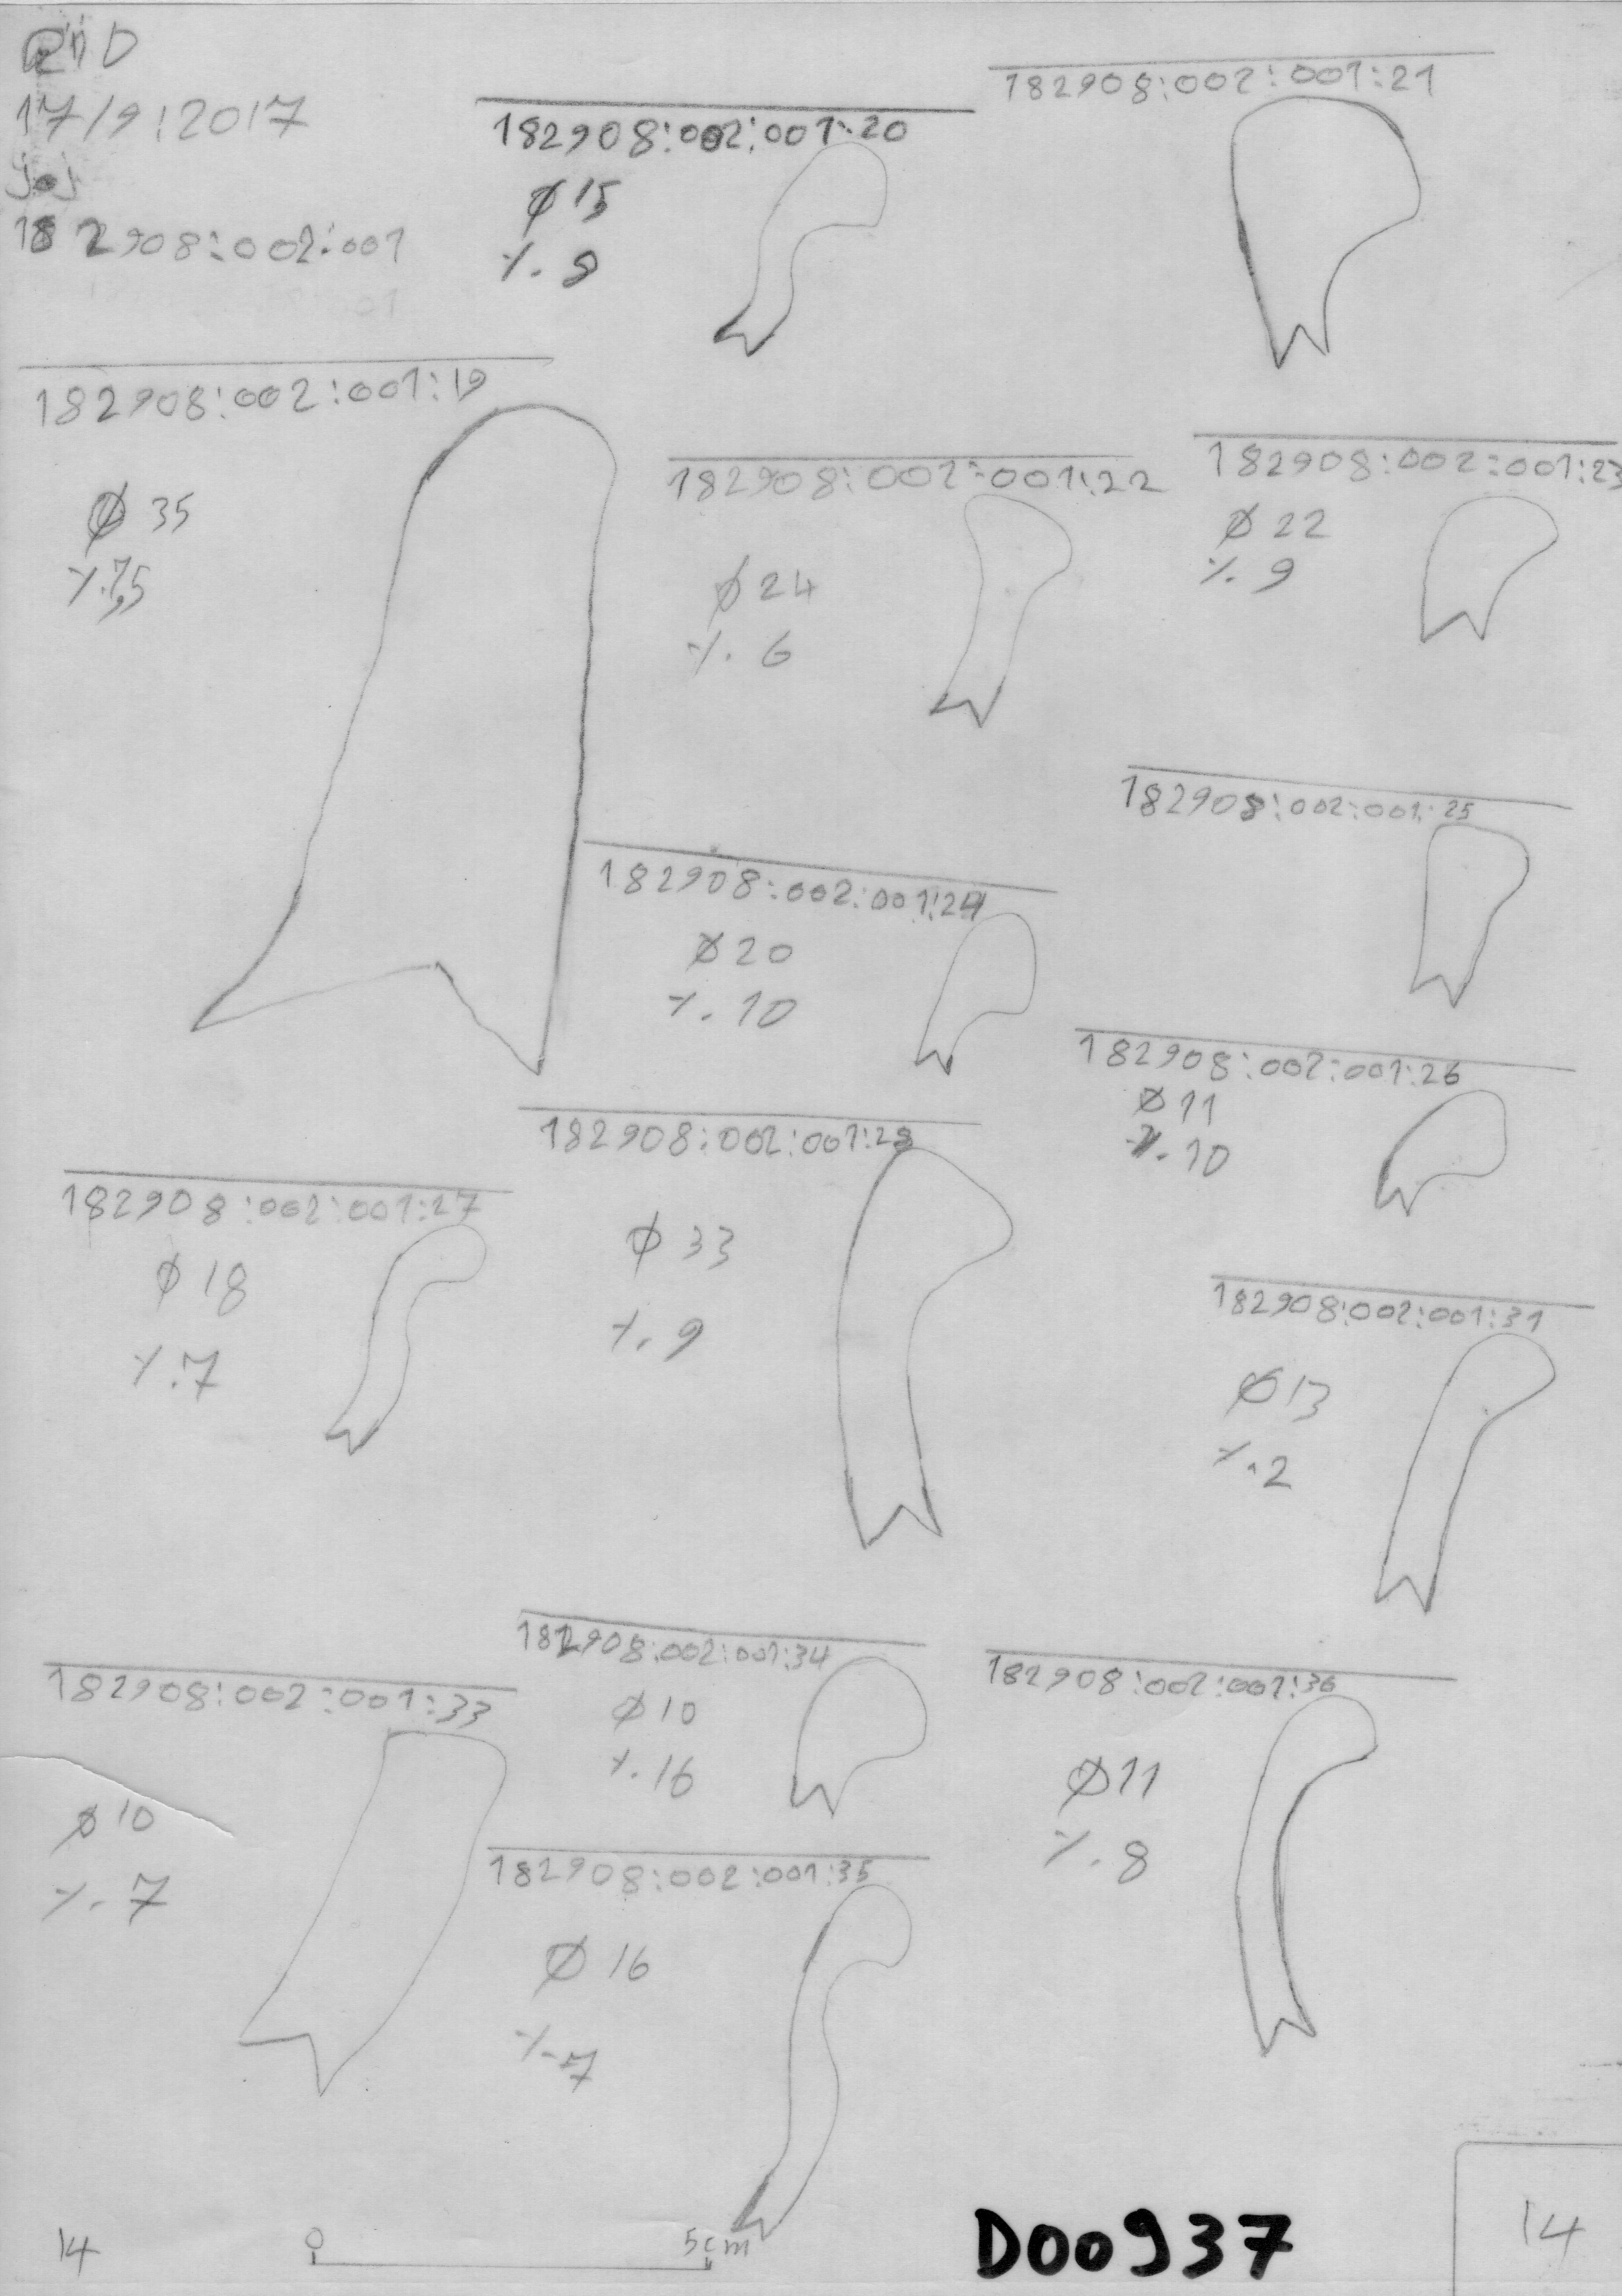 17/9/2017
182908:002:001
182908:002:001:20
Ø 15
%. 8
182908:002:001:21
182908:002:001:19
Ø 35
%.7,5
182908:002:001:22
Ø 24
%. 6
182908:002:001:23
Ø 22
%. 9
182908:002:001:24
Ø 20
%. 10
182908:002:001:25
182908:002:001:26
Ø 11
%. 10
182908:002:001:27
Ø 18
%.7
182908:002:001:28
Ø 33
%. 9
182908:002:001:31
Ø 13
%.2
182908:002:001:33
Ø 10
%. 7
182908:002:001:34
Ø 10
%. 16
182908:002:001:35
Ø 16
%. 7
182908:002:001:36
Ø 11
%. 8
14
0 5cm
D00937
14